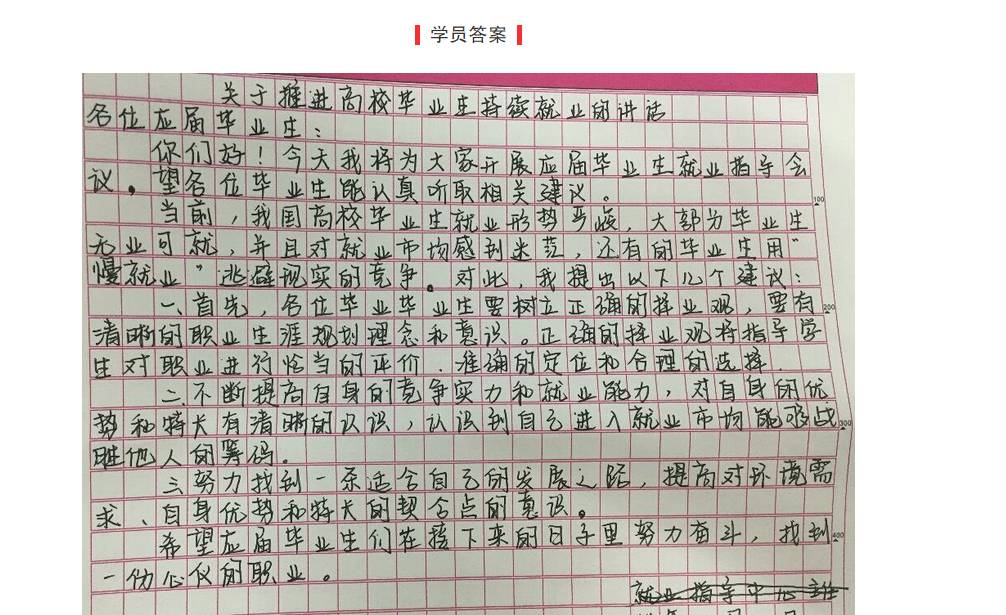 学员答案
关于推进高校毕业生持续就业的讲话
各位应届毕业生：
你们好！今天我将为大家开展应届毕业生就业指导会
议。望各位毕业生能认真听取相关建议。
100
当前，我国高校毕业生就业形势严峻，大部为毕业生
无业可就，并且对就业市场感到迷茫，还有的毕业生用“
慢就业”逃避现实的竞争。对此，我提出以下几个建议：
一、首先，各位毕业毕业生要树立正确的择业观，要有
200
清晰的职业生涯规划理念和意识。正确的择业观将指导学
生对职业进行恰当的评价、准确的定位和合理的选择.
二、不断提高自身的竞争实力和就业能力，对自身的优
势和特长有清晰的认识，认识到自己进入就业市场能够战
300
胜他人的筹码。
三、努力找到一条适合自己的发展之路，提高对环境需
求、自身优势和特长的契合点的意识。
希望应届毕业生们在接下来的日子里努力奋斗，找到
400
一份心仪的职业。
就业指导中心